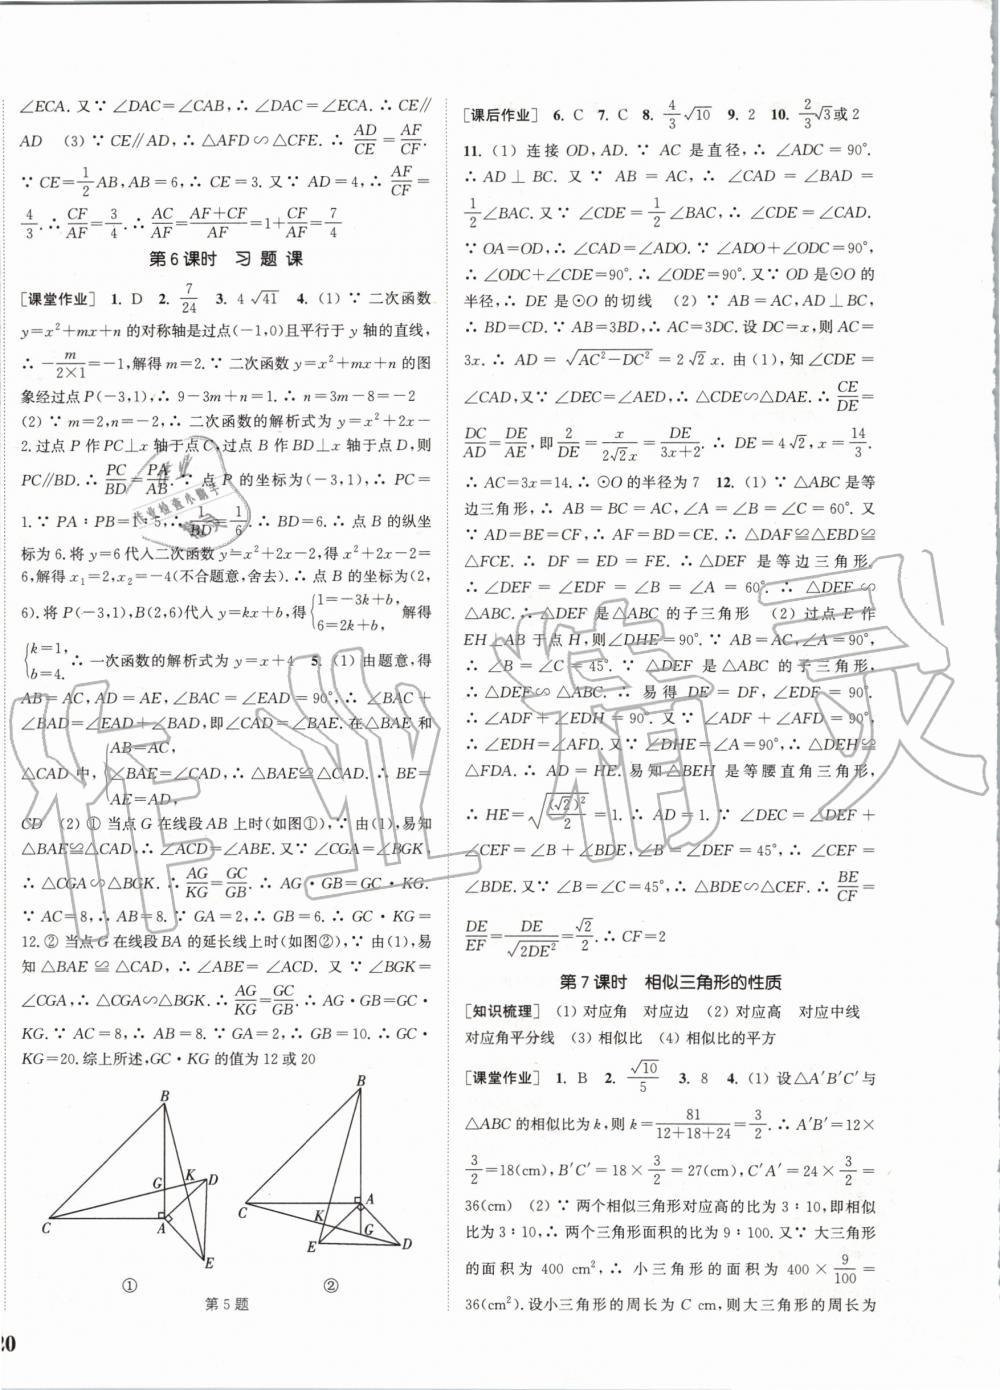 ∠ECA. 又∵ ∠DAC=∠CAB,∴ ∠DAC=∠ECA. ∴ CE∥
AD (3) ∵ CE∥AD,∴ △AFD∽△CFE. ∴ AD/CE=AF/CF.
∵ CE=1/2AB,AB=6,∴ CE=3. 又∵ AD=4,∴ AF/CF=
4/3. ∴ CF/AF=3/4. ∴ AC/AF=(AF+CF)/AF=1+CF/AF=7/4
第6课时 习题课
[课堂作业] 1. D 2. 7/24 3. 4√41 4. (1) ∵ 二次函数
y=x²+mx+n的对称轴是过点(-1,0)且平行于y轴的直线,
∴ -m/(2×1)=-1,解得m=2. ∵ 二次函数y=x²+mx+n的图
象经过点P(-3,1),∴ 9-3m+n=1. ∴ n=3m-8=-2
(2) ∵ m=2,n=-2,∴ 二次函数的解析式为y=x²+2x-
2. 过点P作PC⊥x轴于点C,过点B作BD⊥x轴于点D,则
PC∥BD. ∴ PC/BD=PA/AB. ∵ 点P的坐标为(-3,1),∴ PC=
1. ∵ PA∶PB=1∶5,∴ 1/BD=1/6. ∴ BD=6. ∴ 点B的纵坐
标为6. 将y=6代入二次函数y=x²+2x-2,得x²+2x-2=
6,解得x₁=2,x₂=-4(不合题意,舍去). ∴ 点B的坐标为(2,
6). 将P(-3,1),B(2,6)代入y=kx+b,得{1=-3k+b, 6=2k+b, 解得
{k=1, b=4. ∴ 一次函数的解析式为y=x+4 5. (1) 由题意,得
AB=AC,AD=AE,∠BAC=∠EAD=90°,∴ ∠BAC+
∠BAD=∠EAD+∠BAD,即∠CAD=∠BAE. 在△BAE和
△CAD中,{AB=AC, ∠BAE=∠CAD, AE=AD, ∴ △BAE≌△CAD. ∴ BE=
CD (2) ① 当点G在线段AB上时(如图①),∵ 由(1),易知
△BAE≌△CAD,∴ ∠ACD=∠ABE. 又∵ ∠CGA=∠BGK,
∴ △CGA∽△BGK. ∴ AG/KG=GC/GB. ∴ AG·GB=GC·KG.
∵ AC=8,∴ AB=8. ∵ GA=2,∴ GB=6. ∴ GC·KG=
12. ② 当点G在线段BA的延长线上时(如图②),∵ 由(1),易
知△BAE≌△CAD,∴ ∠ABE=∠ACD. 又∵ ∠BGK=
∠CGA,∴ △CGA∽△BGK. ∴ AG/KG=GC/GB. ∴ AG·GB=GC·
KG. ∵ AC=8,∴ AB=8. ∵ GA=2,∴ GB=10. ∴ GC·
KG=20. 综上所述,GC·KG的值为12或20
B
G
K
D
C
A
E
①
B
C
A
K
G
E
D
②
第5题
20
[课后作业] 6. C 7. C 8. 4/3√10 9. 2 10. 2/3√3或2
11. (1) 连接OD,AD. ∵ AC是直径,∴ ∠ADC=90°.
∴ AD⊥BC. 又∵ AB=AC,∴ ∠CAD=∠BAD=
1/2∠BAC. 又∵ ∠CDE=1/2∠BAC,∴ ∠CDE=∠CAD.
∵ OA=OD,∴ ∠CAD=∠ADO. ∵ ∠ADO+∠ODC=90°,
∴ ∠ODC+∠CDE=90°. ∴ ∠ODE=90°. 又∵ OD是⊙O的
半径,∴ DE是⊙O的切线 (2) ∵ AB=AC,AD⊥BC,
∴ BD=CD. ∵ AB=3BD,∴ AC=3DC. 设DC=x,则AC=
3x. ∴ AD=√(AC²-DC²)=2√2x. 由(1),知∠CDE=
∠CAD,又∵ ∠DEC=∠AED,∴ △CDE∽△DAE. ∴ CE/DE=
DC/AD=DE/AE,即2/DE=x/(2√2x)=DE/(3x+2). ∴ DE=4√2,x=14/3.
∴ AC=3x=14. ∴ ⊙O的半径为7 12. (1) ∵ △ABC是等
边三角形,∴ AB=BC=AC,∠A=∠B=∠C=60°. 又
∵ AD=BE=CF,∴ AF=BD=CE. ∴ △DAF≌△EBD≌
△FCE. ∴ DF=ED=FE. ∴ △DEF是等边三角形.
∴ ∠DEF=∠EDF=∠B=∠A=60°. ∴ △DEF∽
△ABC. ∴ △DEF是△ABC的子三角形 (2) 过点E作
EH⊥AB于点H,则∠DHE=90°. ∵ AB=AC,∠A=90°,
∴ ∠B=∠C=45°. ∵ △DEF是△ABC的子三角形,
∴ △DEF∽△ABC. ∴ 易得DE=DF,∠EDF=90°.
∴ ∠ADF+∠EDH=90°. 又∵ ∠ADF+∠AFD=90°,
∴ ∠EDH=∠AFD. 又∵ ∠DHE=∠A=90°,∴ △DEH≌
△FDA. ∴ AD=HE. ∵ 易知△BEH是等腰直角三角形,
∴ HE=√((√2)²/2)=1. ∴ AD=1. ∵ ∠DEC=∠DEF+
∠CEF=∠B+∠BDE,∠B=∠DEF=45°,∴ ∠CEF=
∠BDE. 又∵ ∠B=∠C=45°,∴ △BDE∽△CEF. ∴ BE/CF=
DE/EF=DE/√(2DE²)=√2/2. ∴ CF=2
第7课时 相似三角形的性质
[知识梳理] (1) 对应角 对应边 (2) 对应高 对应中线
对应角平分线 (3) 相似比 (4) 相似比的平方
[课堂作业] 1. B 2. √10/5 3. 8 4. (1) 设△A′B′C′与
△ABC的相似比为k,则k=81/(12+18+24)=3/2. ∴ A′B′=12×
3/2=18(cm),B′C′=18×3/2=27(cm),C′A′=24×3/2=
36(cm) (2) ∵ 两个相似三角形对应高的比为3∶10,即相似
比为3∶10,∴ 两个三角形面积的比为9∶100. 又∵ 大三角形
的面积为400 cm²,∴ 小三角形的面积为400×9/100=
36(cm²). 设小三角形的周长为C cm,则大三角形的周长为
作业精灵
作业检查小助手